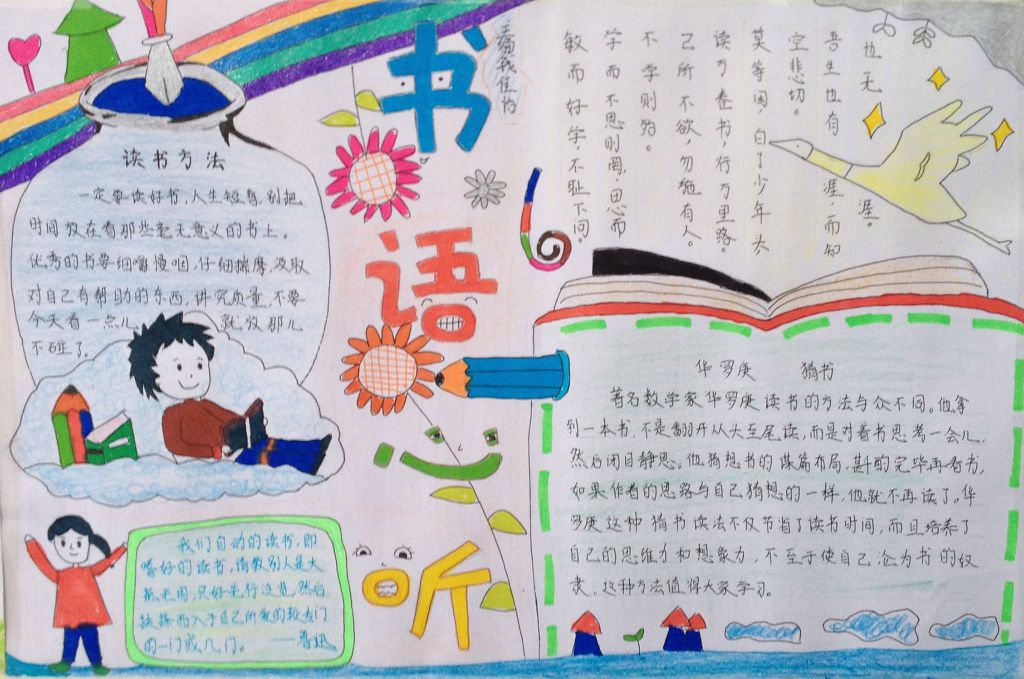 书
语
心
听
读书方法
一定要读好书,人生短暂,别把
时间放在看那些毫无意义的书上。
优秀的书要细嚼慢咽,仔细揣摩,汲取
对自己有帮助的东西,讲究质量,不要
今天看一点儿
就放那儿
不碰了。
我们自动的读书,即
嗜好的读书,请教别人是大
抵无用,只好先行泛览,然后
抉择而入于自己所爱的较专门
的一门或几门。——鲁迅
也无涯。
吾生也有涯,而知
空悲切。
莫等闲,白了少年头,
读万卷书,行万里路。
己所不欲,勿施有人。
不学则殆。
学而不思则罔,思而
敏而好学,不耻下问。
华罗庚 猜书
著名数学家华罗庚读书的方法与众不同。他拿
到一本书,不是翻开从头至尾读,而是对着书思考一会儿,
然后闭目静思。他猜想书的谋篇布局,斟酌完毕再看书,
如果作者的思路与自己猜想的一样,他就不再读了。华
罗庚这种猜书读法不仅节省了读书时间,而且培养了
自己的思维力和想象力,不至于使自己沦为书的奴
隶。这种方法值得大家学习。